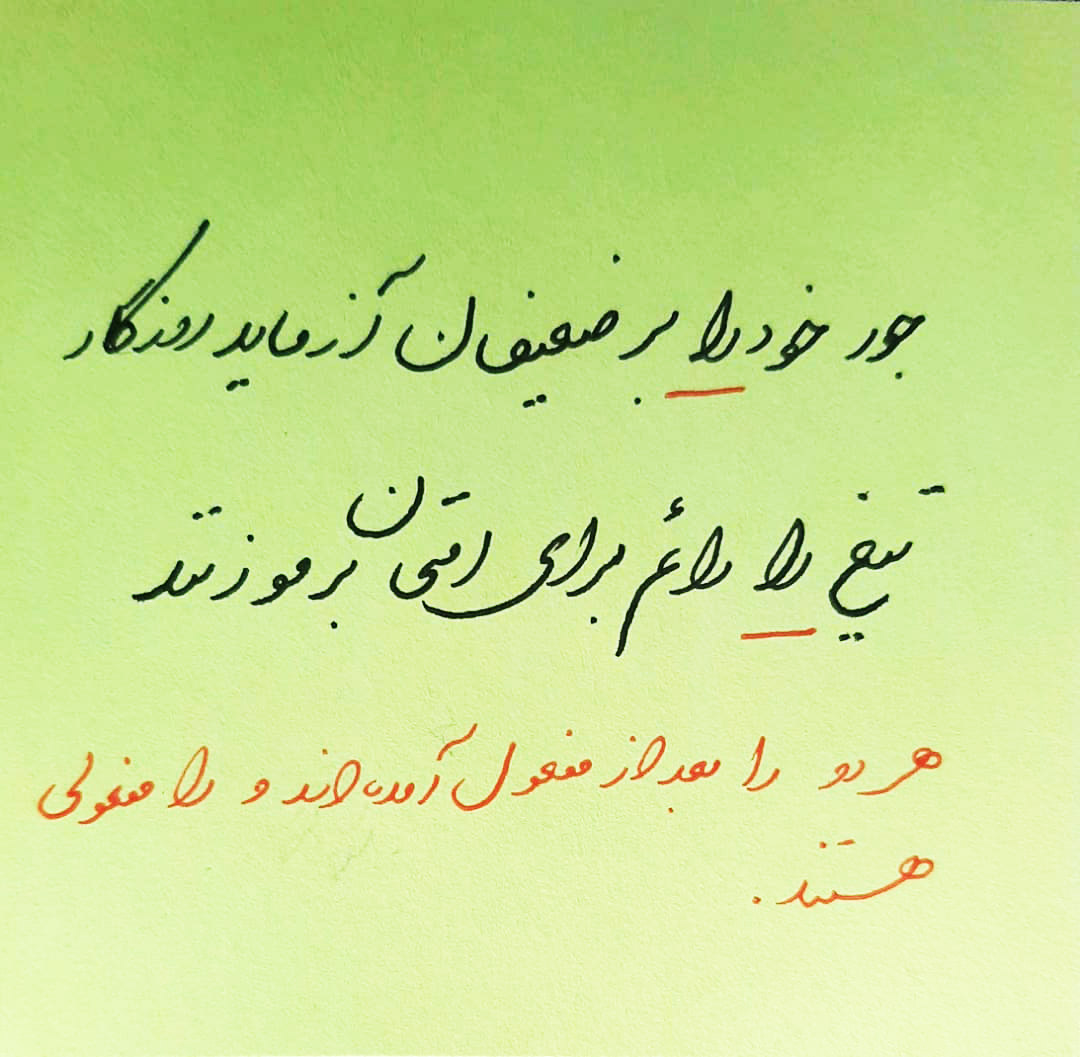 جور خود را بر ضعیفان آزماید روزگار
تیغ را دائم برای امتحان بر مو زنند
هر دو را بعد از مفعول آمده‌اند و را مفعولی
هستند.